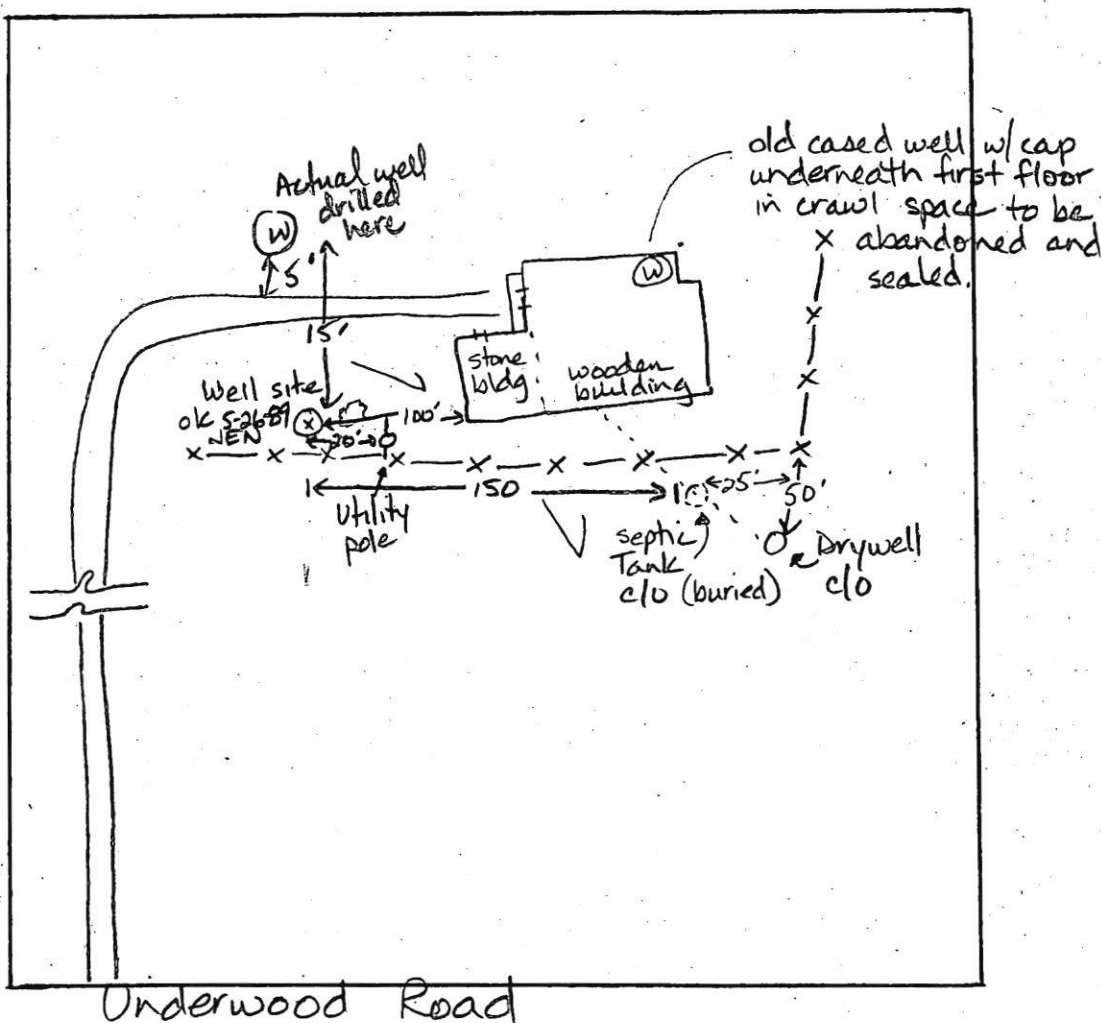 old cased well w/cap
underneath first floor
in crawl space to be
abandoned and
sealed.
Actual well
drilled
here
W
5'
W
15'
stone
bldg
wooden
building
Well site
ok 5-26-89
NEN
X
100'
20'
150
Utility
pole
25'
50'
septic
Tank
c/o (buried)
Drywell
c/o
Underwood Road